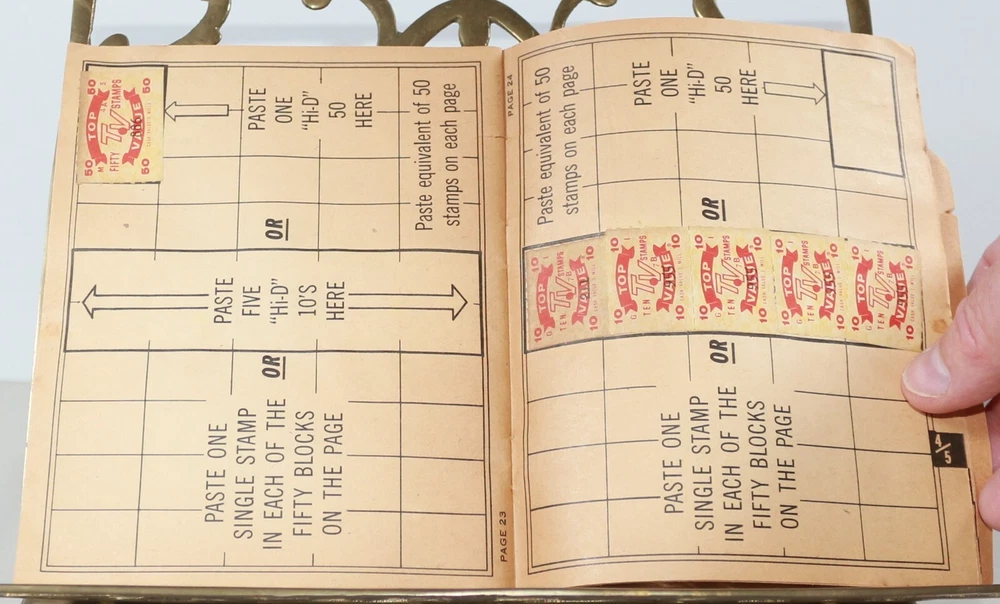 50 TOP 50
M 4A 1
FIFTY TV STAMPS
VALUE
50 50
PASTE
ONE
"Hi-D"
50
HERE
Paste equivalent of 50
stamps on each page
OR
PASTE
FIVE
"Hi-D"
10'S
HERE
OR
PASTE ONE
SINGLE STAMP
IN EACH OF THE
FIFTY BLOCKS
ON THE PAGE
PAGE 23
PAGE 24
Paste equivalent of 50
stamps on each page
PASTE
ONE
"Hi-D"
50
HERE
OR
10 TOP 10
TEN TV STAMPS
VALUE
10 10
10 TOP 10
G TEN TV STAMPS
VALUE
10 10
10 TOP 10
G TEN TV STAMPS
VALUE
10 10
10 TOP 10
G TEN TV STAMPS
VALUE
10 10
10 TOP 10
G TEN TV STAMPS
VALUE
10 10
OR
PASTE ONE
SINGLE STAMP
IN EACH OF THE
FIFTY BLOCKS
ON THE PAGE
4/5